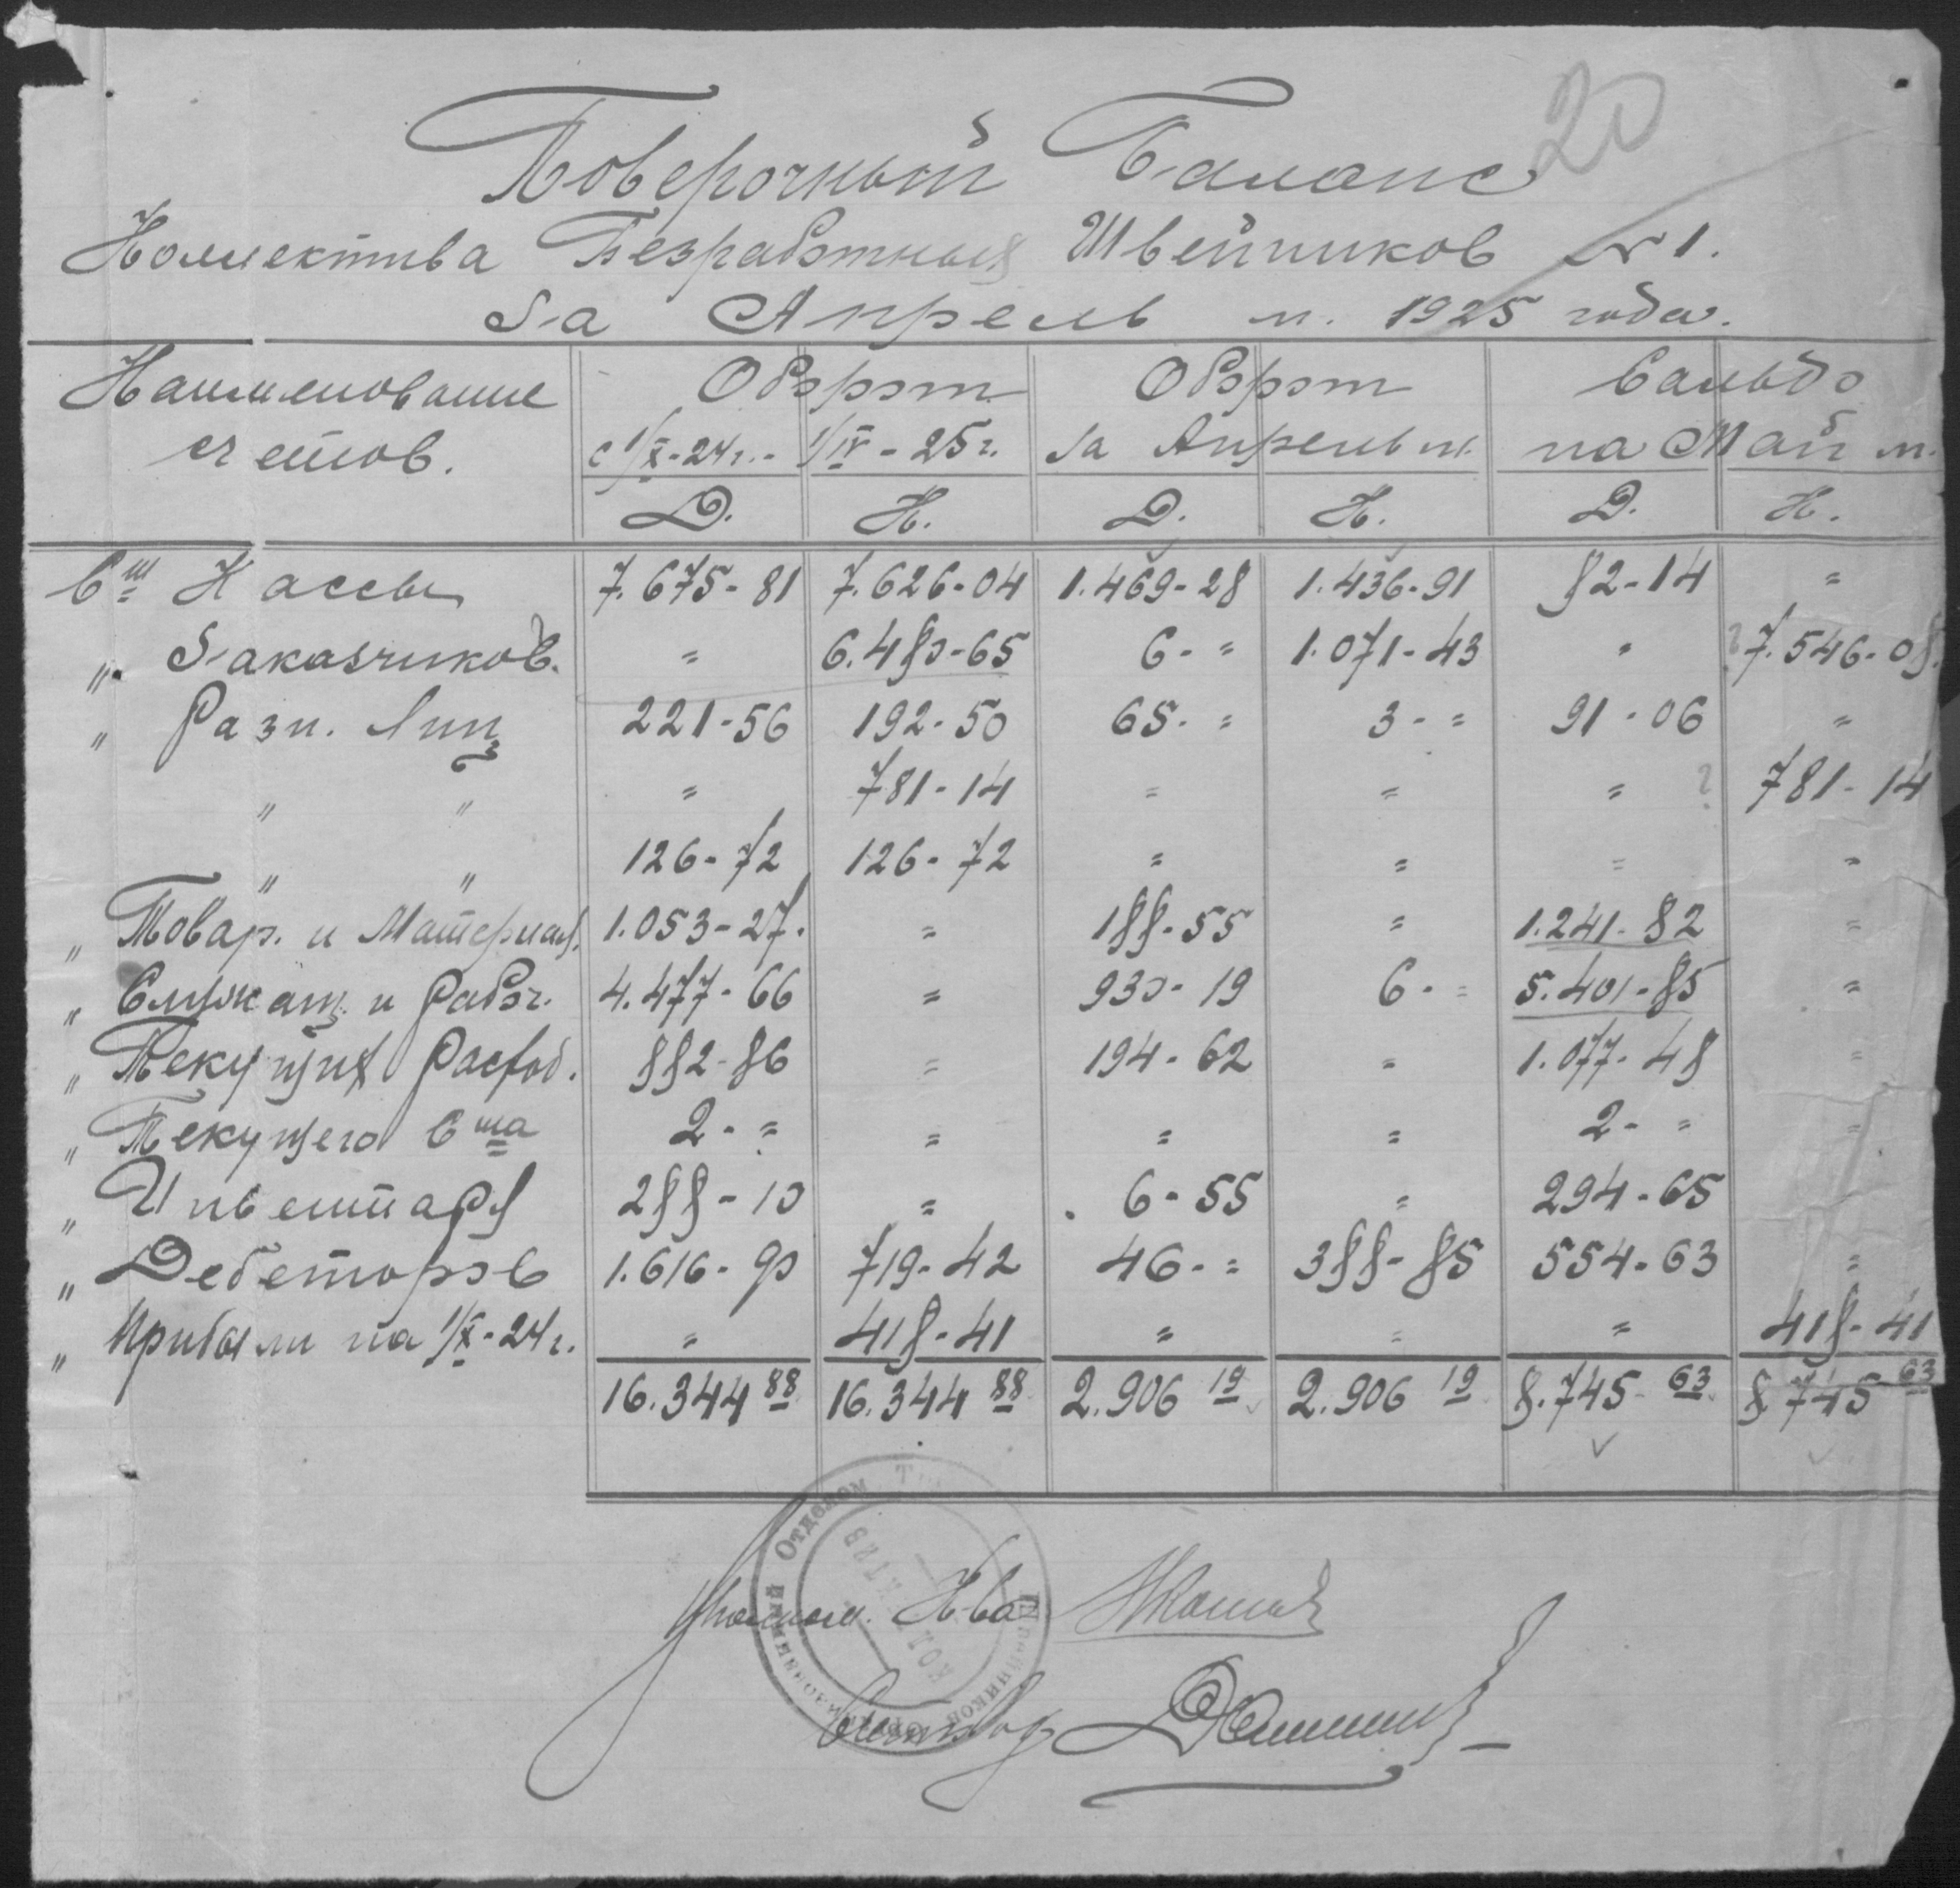 20
Поверочный Баланс
Коллектива Безработных Швейников № 1.
За Апрель м. 1925 года.
Наименование Оборот Оборот Сальдо
счетов. с 1/X-24г. - 1/IV-25г. за Апрель м. на Май м.
Д. К. Д. К. Д. К.
Сч Кассы 7.675-81 7.626-04 1.469-28 1.436-91 82-14 "
" Заказчиков. " 6.480-65 6-" 1.071-43 " ? 7.546-08.
" Разн. Лиц 221-56 192-50 65-" 3-" 91-06 "
" " " 781-14 " " " ? 781-14
" " 126-72 126-72 " " " "
" Товар. и Материал. 1.053-27. " 188-55 " 1.241-82 "
" Служащ. и Рабоч. 4.477-66 " 930-19 6-" 5.401-85 "
" Текущих Расход. 882-86 " 194-62 " 1.077-48 "
" Текущего Сч-та 2-" " " " 2-" "
" Инвентаря 288-10 " 6-55 " 294-65
" Дебеторов 1.616-90 719-42 46-" 388-85 554-63 "
" Прибыли на 1/X-24г. " 418-41 " " " 418-41
16.344 88 16.344 88 2.906 19 2.906 19 8.745-63 8.745 63
Отделом
коллектив
Уполном. К-ва
Счетовод